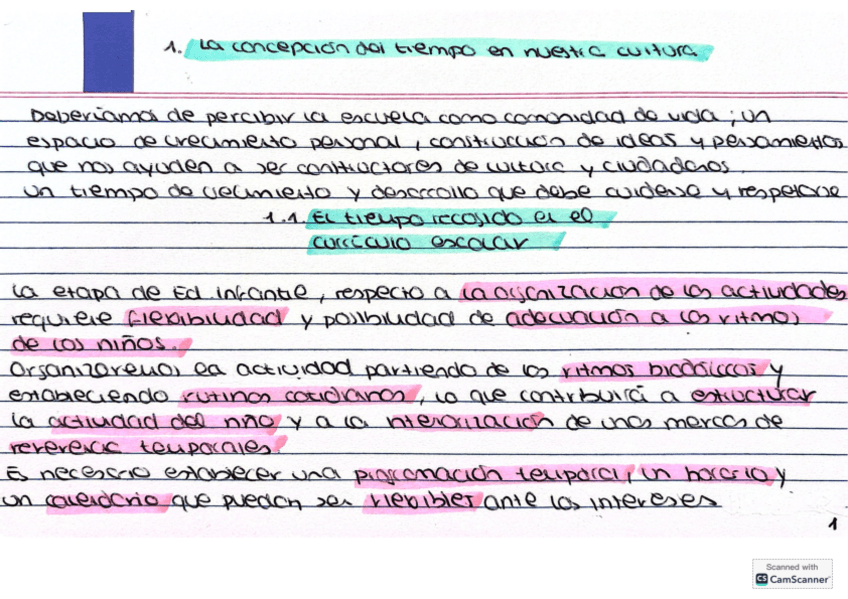 1. La concepción del tiempo en nuestra cultura.
Deberíamos de percibir la escuela como comunidad de vida; un
espacio de crecimiento personal, construcción de ideas y pensamientos
que nos ayuden a ser constructores de cultura y ciudadanos.
un tiempo de crecimiento y desarrollo que debe cuidarse y respetarse
1.1. El tiempo recogido en el
currículo escolar
La etapa de Ed. infantil, respecto a la organización de las actividades
requiere flexibilidad y posibilidad de adecuación a los ritmos
de los niños.
Organizaremos la actividad partiendo de los ritmos biológicos y
estableciendo rutinas cotidianas, lo que contribuirá a estructurar
la actividad del niño y a la interiorización de unos marcos de
referencia temporales.
Es necesario establecer una programación temporal, un horario y
un calendario que puedan ser flexibles ante los intereses
1
Scanned with
CS CamScanner